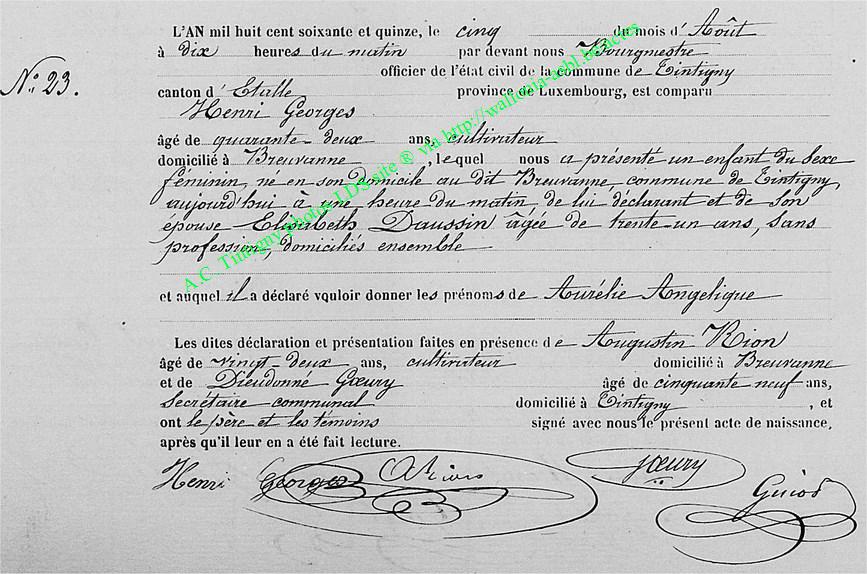 L'AN mil huit cent soixante et quinze, le cinq du mois d'Août
à dix heures du matin par devant nous Bourgmestre
officier de l'état civil de la commune de Tintigny
N° 23.
canton d'Etalle province de Luxembourg, est comparu
Henri Georges
âgé de quarante-deux ans, cultivateur
domicilié à Breuvanne, lequel nous a présenté un enfant du Sexe
féminin, né en son domicile au dit Breuvanne, commune de Tintigny,
aujourd'hui à une heure du matin de lui déclarant et de son
épouse Elisabeth Daussin âgée de trente-un ans, sans
profession, domiciliés ensemble
et auquel il a déclaré vouloir donner les prénoms de Aurélie Angelique
Les dites déclaration et présentation faites en présence de Augustin Rion
âgé de vingt-deux ans, cultivateur domicilié à Breuvanne
et de Dieudonné Gœury âgé de cinquante neuf ans,
Secrétaire communal domicilié à Tintigny, et
ont le père et les témoins signé avec nous le présent acte de naissance,
après qu'il leur en a été fait lecture.
Henri Georges ARion Gœury Guiot
A.C. Tintigny photos LDS site ® via http://wallonia-asbl.be/actes